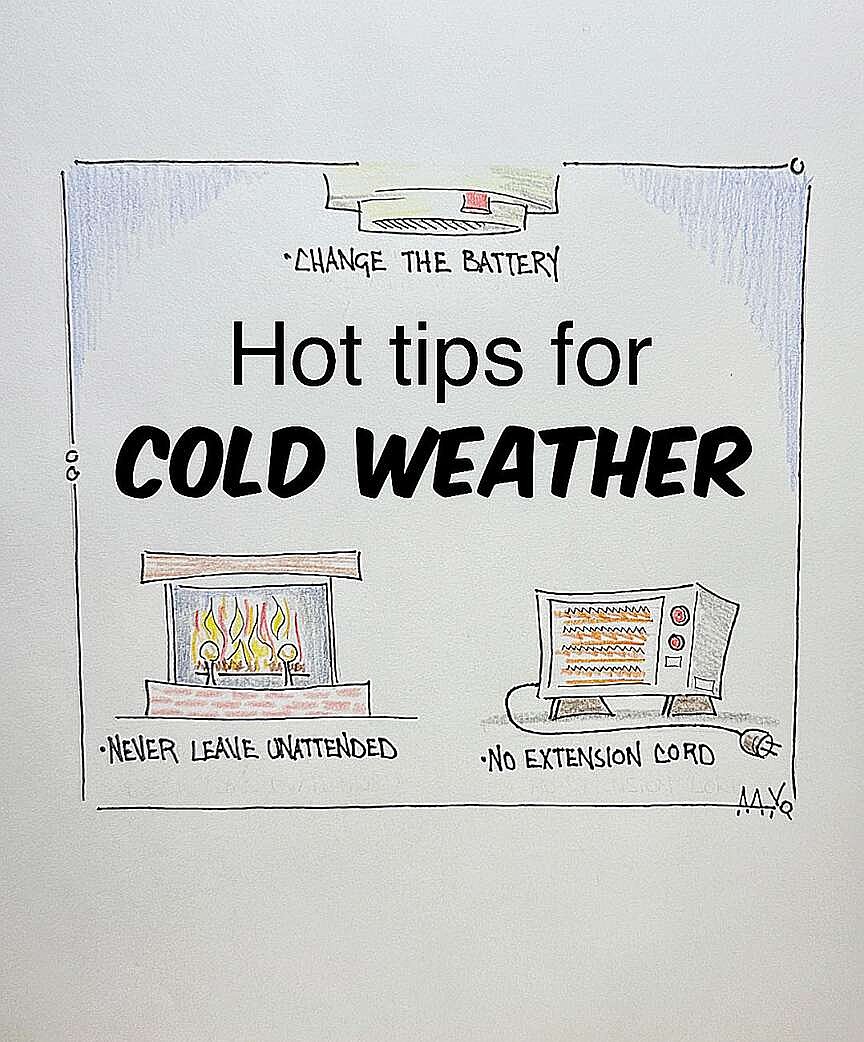 •CHANGE THE BATTERY
Hot tips for
COLD WEATHER
•NEVER LEAVE UNATTENDED
•NO EXTENSION CORD